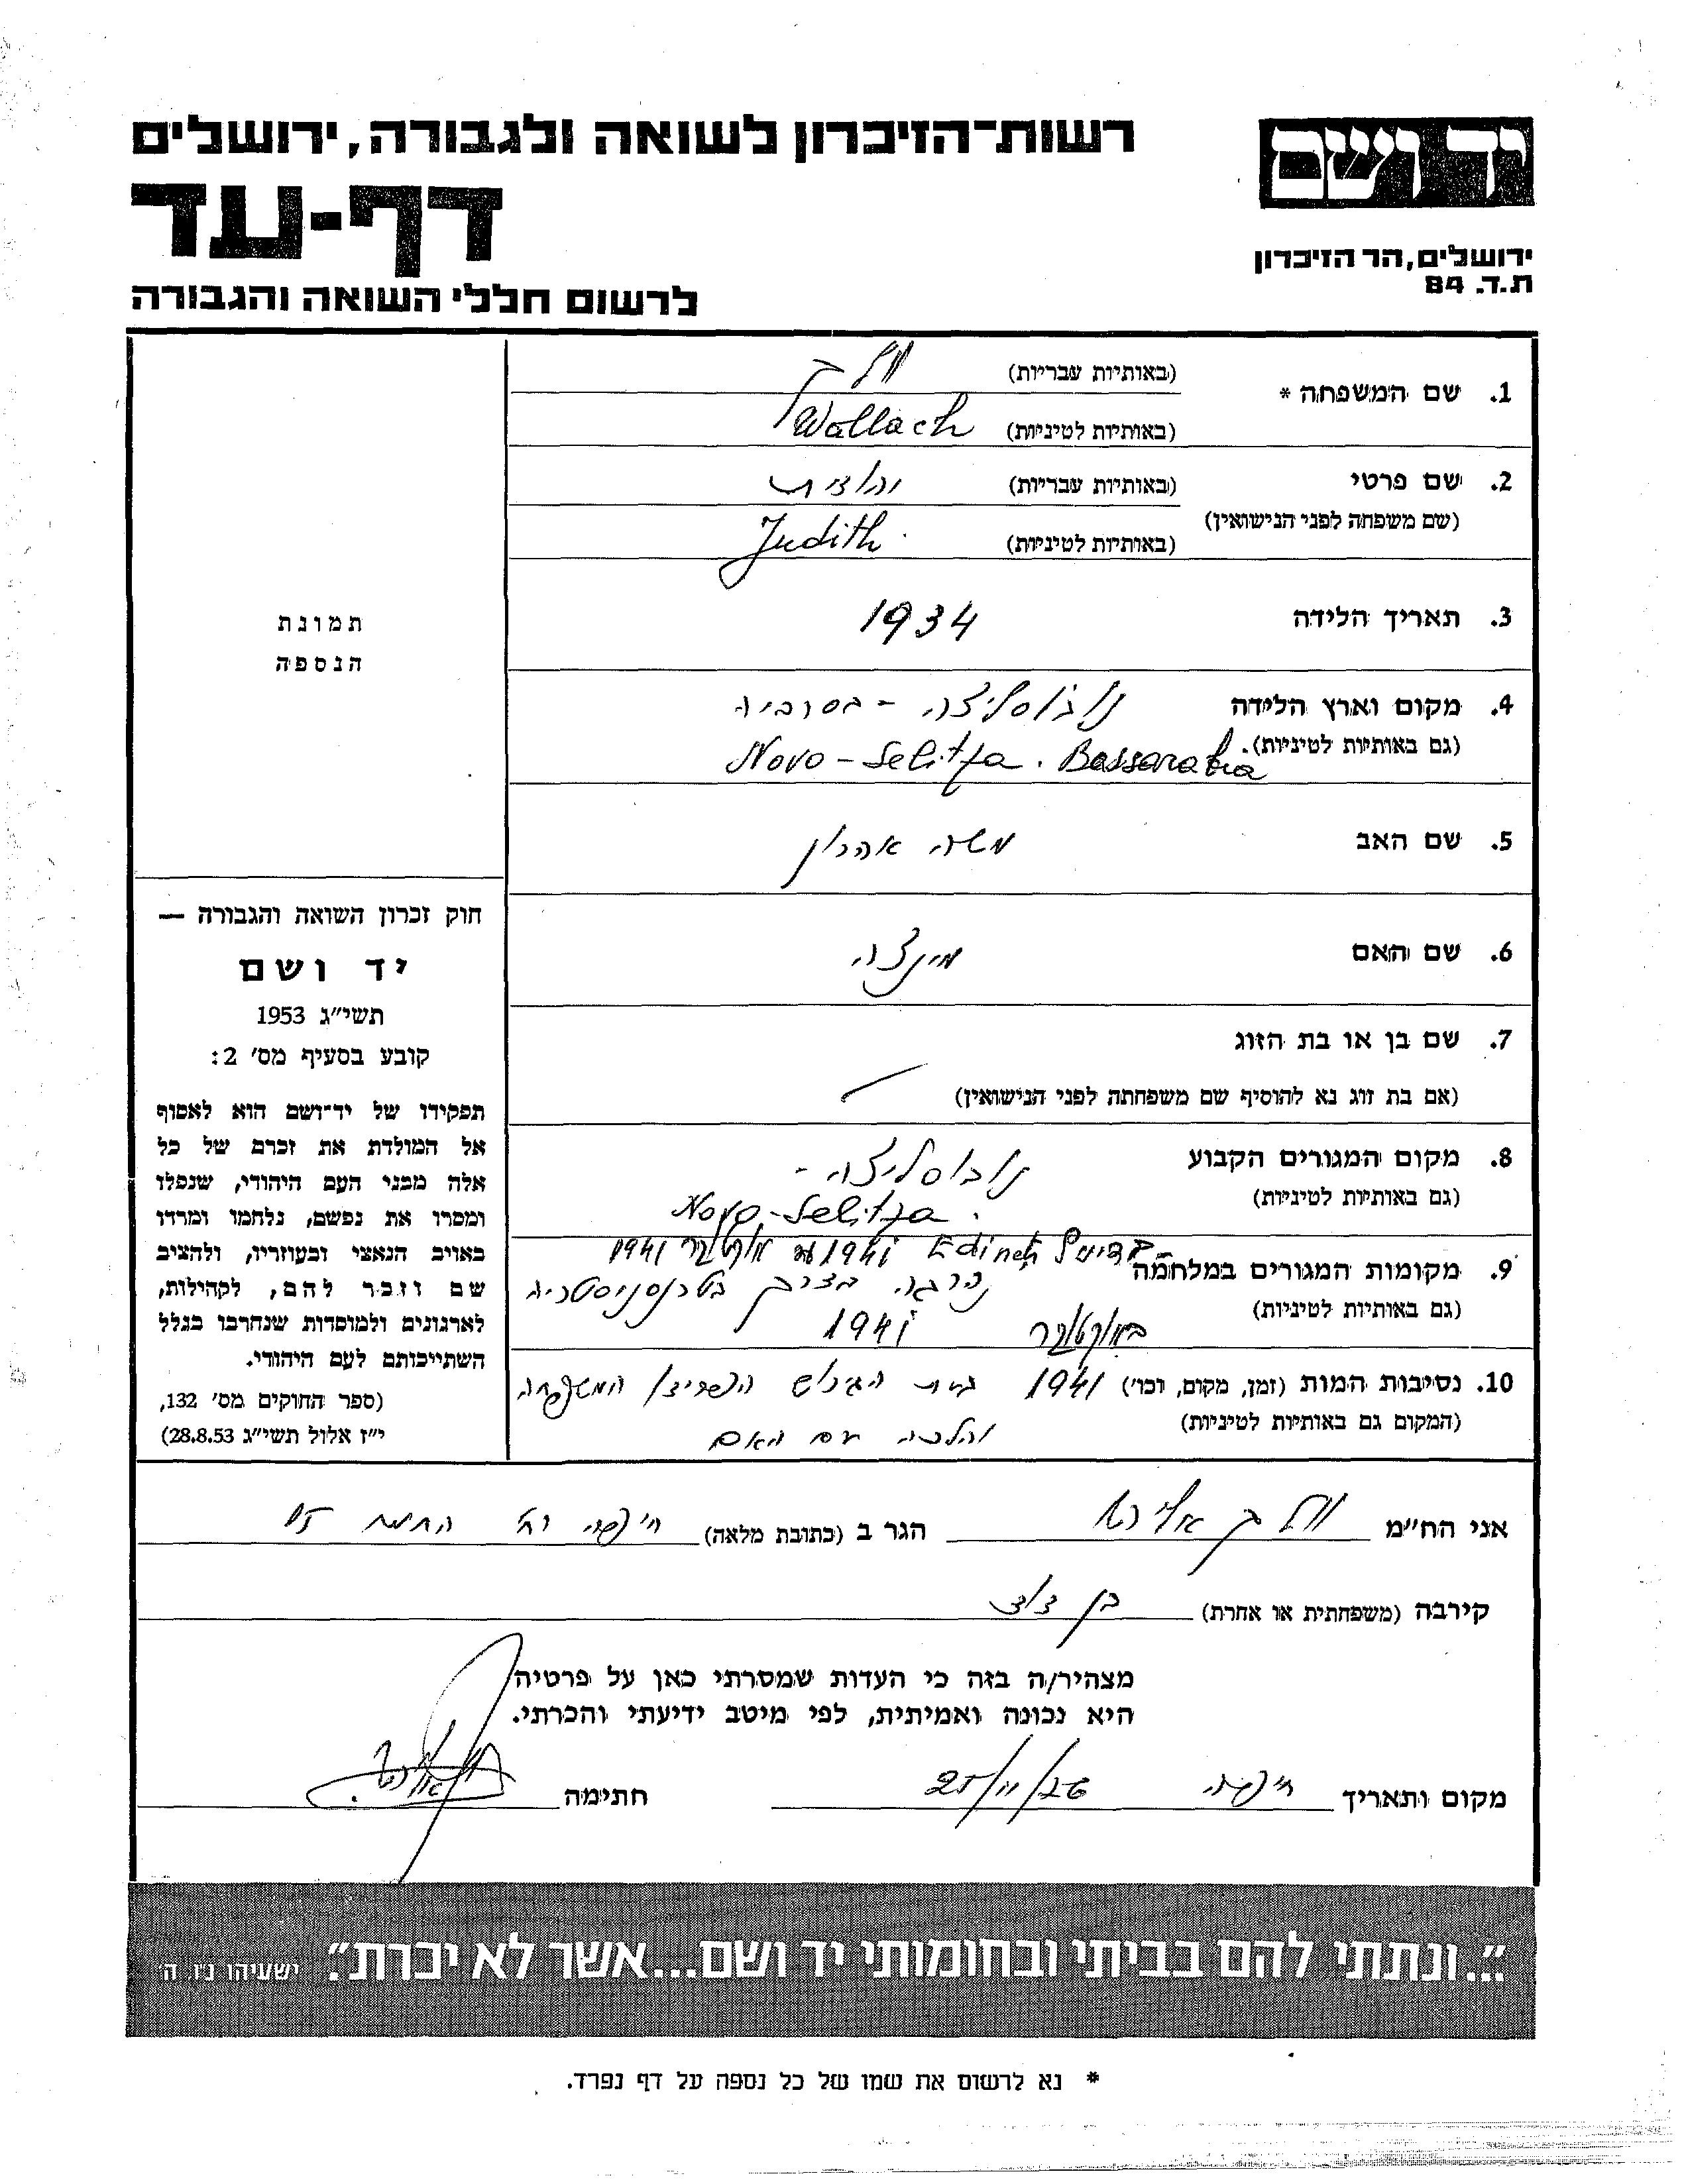 רשות-הזיכרון לשואה ולגבורה, ירושלים
יד ושם
דף-עד
ירושלים, הר הזיכרון
ת.ד. 84
לרשום חללי השואה והגבורה
1. שם המשפחה * (באותיות עבריות) ולך
(באותיות לטיניות) Wallach
2. שם פרטי (באותיות עבריות) יהודית
(שם משפחה לפני הנישואין)
(באותיות לטיניות) Judith
3. תאריך הלידה 1934
4. מקום וארץ הלידה נובוסליצה - בסרביה
(גם באותיות לטיניות). Novo-Selitza. Bassarabia
5. שם האב משה אהרון
6. שם האם מינצה
7. שם בן או בת הזוג
(אם בת זוג נא להוסיף שם משפחתה לפני הנישואין)
8. מקום המגורים הקבוע נובוסליצה -
(גם באותיות לטיניות) Novo-Selitza.
Edinetz 1941 אוקטובר 1941
9. מקומות המגורים במלחמה בטרנסניסטריה
(גם באותיות לטיניות) באוקטובר 1941
10. נסיבות המות (זמן, מקום, וכו') 1941 בעת הגירוש הפרידו המשפחה
(המקום גם באותיות לטיניות) והלכה עם האם
תמונת
הנספה
חוק זכרון השואה והגבורה —
יד ושם
תשי״ג 1953
קובע בסעיף מס׳ 2:
תפקידו של יד־ושם הוא לאסוף
אל המולדת את זכרם של כל
אלה מבני העם היהודי, שנפלו
ומסרו את נפשם, נלחמו ומרדו
באויב הנאצי ובעוזריו, ולהציב
שם וזכר להם, לקהילות,
לארגונים ולמוסדות שנחרבו בגלל
השתייכותם לעם היהודי.
(ספר החוקים מס׳ 132,
י״ז אלול תשי״ג 28.8.53)
אני הח״מ ולך הגר ב (כתובת מלאה) חיפה רח'
קירבה (משפחתית או אחרת) בן דוד
מצהיר/ה בזה כי העדות שמסרתי כאן על פרטיה
היא נכונה ואמיתית, לפי מיטב ידיעתי והכרתי.
מקום ותאריך חיפה חתימה
״...ונתתי להם בביתי ובחומותי יד ושם...אשר לא יכרת״. ישעיהו נ״ו, ה׳
* נא לרשום את שמו של כל נספה על דף נפרד.